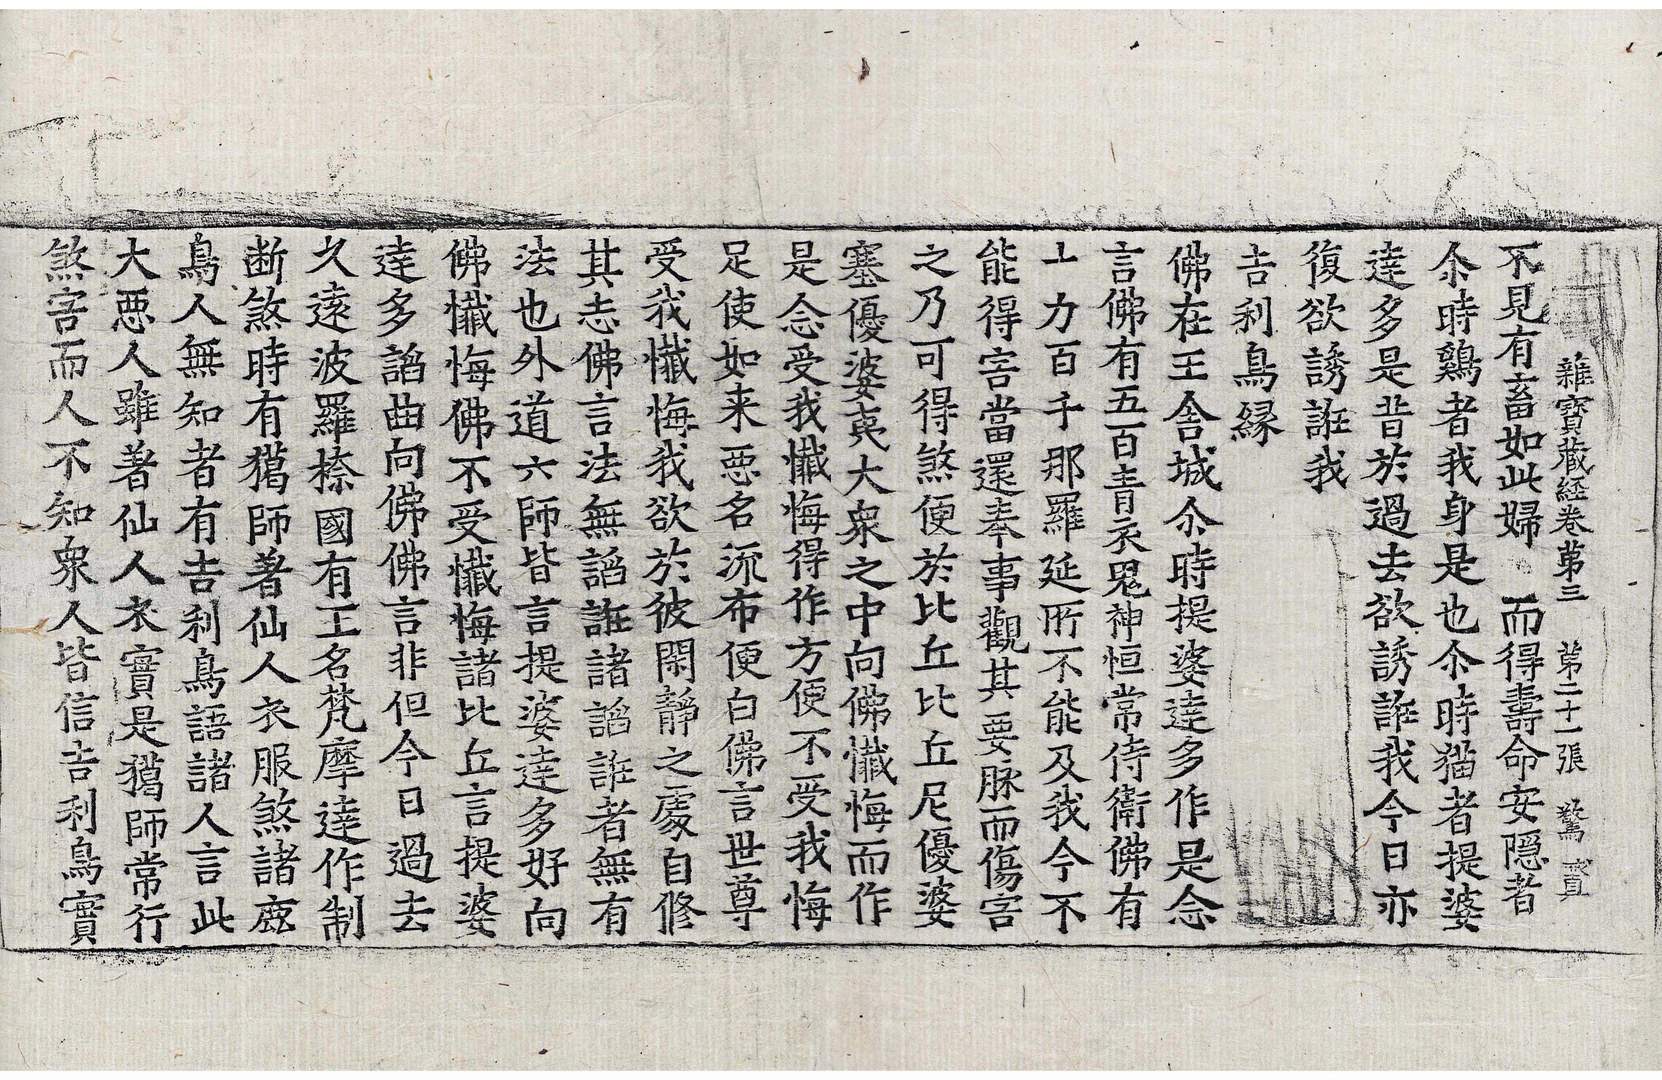 雜寶藏経卷第三　第二十一張　驚
不見有畜如此婦　而得壽命安隱者
尒時鷄者我身是也尒時猫者提婆
達多是昔於過去欲誘誑我今日亦
復欲誘誑我
吉利鳥縁
佛在王舍城尒時提婆達多作是念
言佛有五百青衣鬼神恒常侍衛佛有
十力百千那羅延所不能及我今不
能得害當還奉事觀其要脉而傷害
之乃可得煞便於比丘比丘尼優婆
塞優婆夷大衆之中向佛懺悔而作
是念受我懺悔得作方便不受我悔
足使如来惡名流布便白佛言世尊
受我懺悔我欲於彼閑靜之處自修
其志佛言法無諂誑諸諂誑者無有
法也外道六師皆言提婆達多好向
佛懺悔佛不受懺悔諸比丘言提婆
達多諂曲向佛佛言非但今日過去
久遠波羅㮈國有王名梵摩達作制
断煞時有獵師著仙人衣服煞諸鹿
鳥人無知者有吉利鳥語諸人言此
大惡人雖著仙人衣實是獵師常行
煞害而人不知衆人皆信吉利鳥實